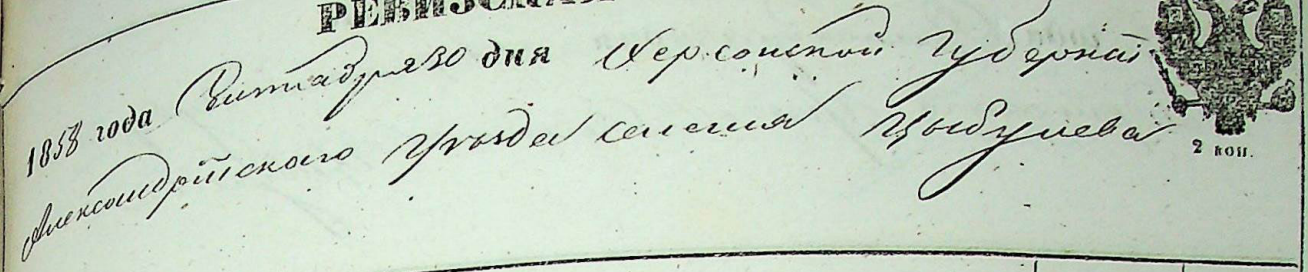 РЕВИЗСКАЯ
1858 года Октабря 30 дня Херсонской Губерніи
Александрійского Уѣзда селенія Цыбулева
2 коп.